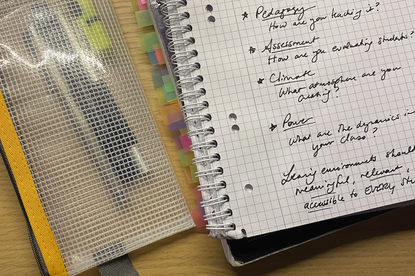 ☆ Pedagogy
How are you teaching it?
☆ Assessment
How are you evaluating students?
☆ Climate
What atmosphere are you
creating?
☆ Power
What are the dynamics in
your class?
Learning environments should
meaningful, relevant,
accessible to EVERY